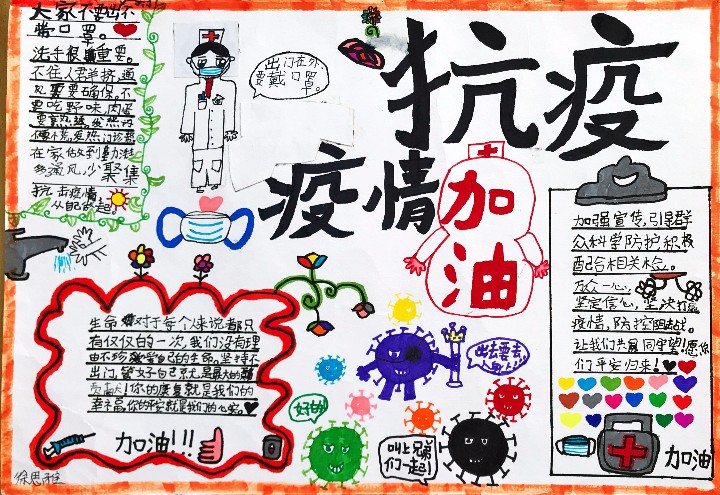 大家不要出不
带口罩。
洗手很重要。
不往人群挤,通
风要确保,不
要吃野味,肉蛋
在家做到勤洗
多通风,少聚集
抗击疫情
从自己做起。
出门在外
要戴口罩。
抗疫
疫情
加油
生命对于每个人来说都只
有仅仅的一次,我们没有理
由不珍爱自己的生命。坚持不
出门,管好自己就是最大的
贡献!你的康复就是我们的
幸福,你的平安就是我们的心安。
加油!!!
出去要去
好的!
叫上兄弟
们一起!
加强宣传,引导群
众科学防护,积极
配合相关检。
万众一心,
坚定信心,坚决打赢
疫情,防控阻击战。
让我们共同守望!愿你
们平安归来!
加油
徐思雅